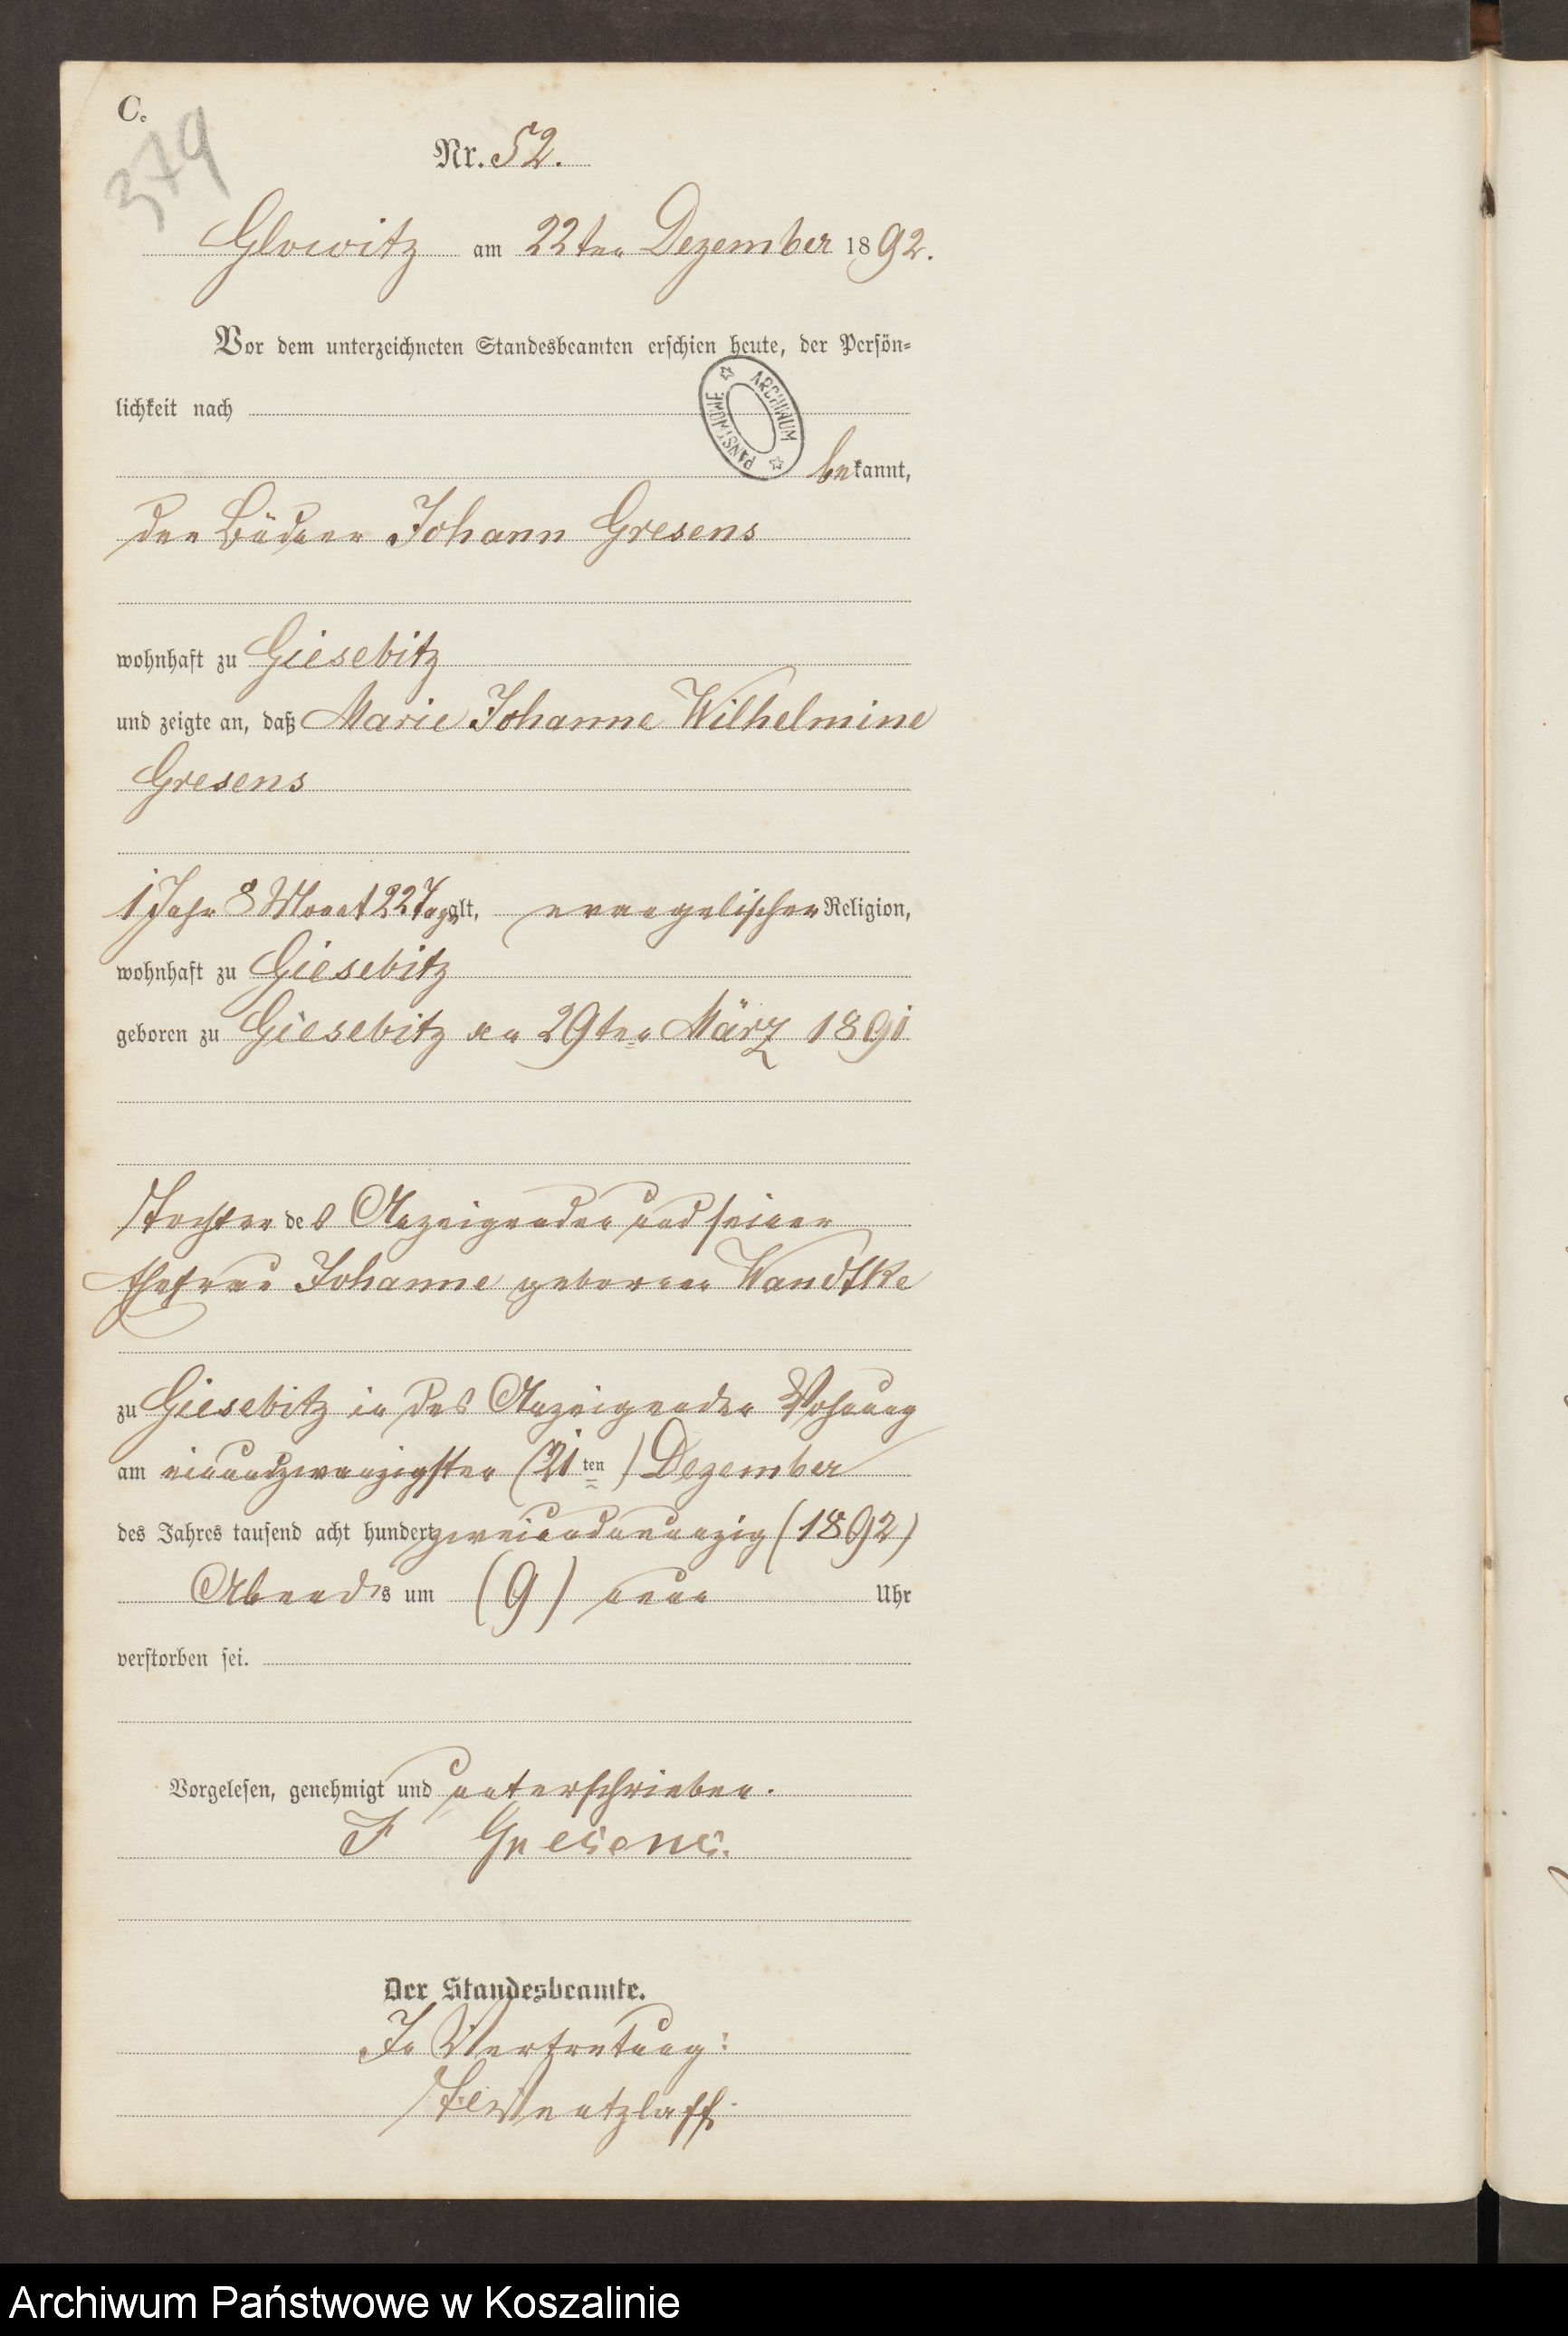 C.
379
Nr. 52.
Glowitz am 22ten Dezember 1892.
Vor dem unterzeichneten Standesbeamten erschien heute, der Persön-
lichkeit nach
ARCHIWUM PAŃSTWOWE
bekannt,
der Büdner Johann Gresens
wohnhaft zu Giesebitz
und zeigte an, daß Marie Johanne Wilhelmine
Gresens
1 Jahr 8 Monat 22 Tage alt, evangelischer Religion,
wohnhaft zu Giesebitz
geboren zu Giesebitz am 29ten März 1891
Tochter des Anzeigenden und seiner
Ehefrau Johanne geborenen Wandtke
zu Giesebitz in des Anzeigenden Wohnung
am einundzwanzigsten (21ten) Dezember
des Jahres tausend acht hundert zweiundneunzig (1892)
Abends um (9) neun Uhr
verstorben sei.
Vorgelesen, genehmigt und unterschrieben.
J Gresens.
Der Standesbeamte.
In Vertretung:
Wentzlaff.
Archiwum Państwowe w Koszalinie